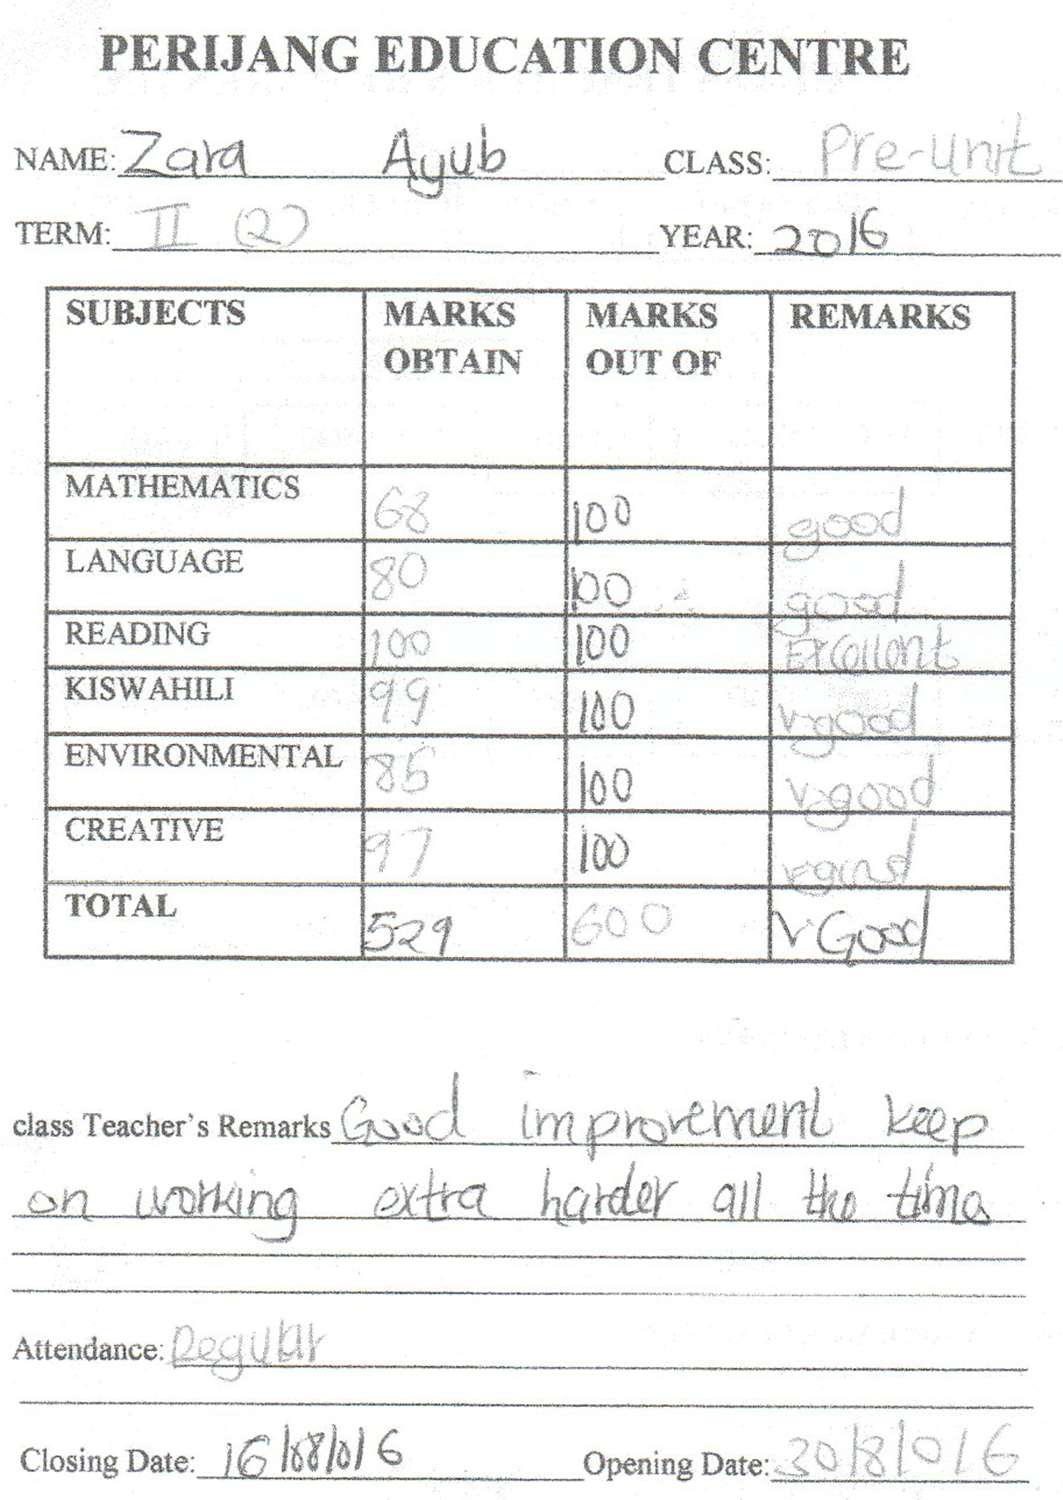 PERIJANG EDUCATION CENTRE
NAME: Zara Ayub CLASS: Pre-unit
TERM: II (2) YEAR: 2016
SUBJECTS MARKS OBTAIN MARKS OUT OF REMARKS
MATHEMATICS 68 100 good
LANGUAGE 80 100 good
READING 100 100 Excellent
KISWAHILI 99 100 v.good
ENVIRONMENTAL 85 100 v.good
CREATIVE 97 100 v.good
TOTAL 529 600 V.Good
class Teacher's Remarks Good improvement keep
on working extra harder all the time
Attendance: Regular
Closing Date: 16/08/016 Opening Date: 30/8/016